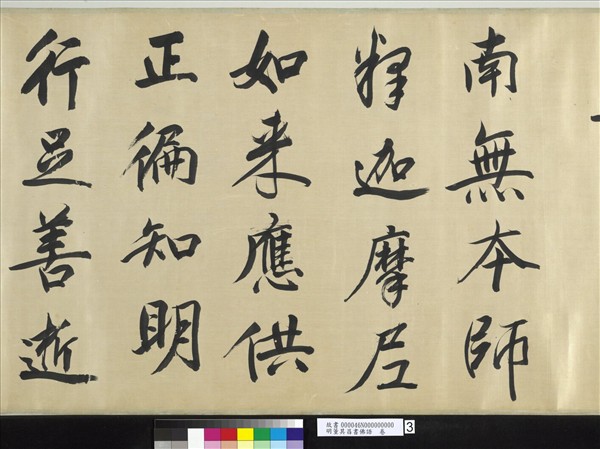 南無本師
釋迦摩尼
如来應供
正徧知明
行足善逝
故書000046N000000000
明董其昌書佛語 卷
3